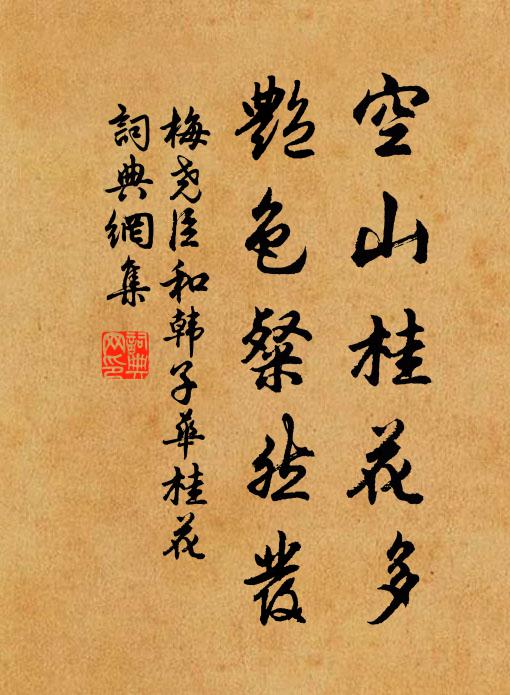 空山桂花多
艷色粲然發
梅尧臣和韩子華桂花
詞典網集
詞典
网印